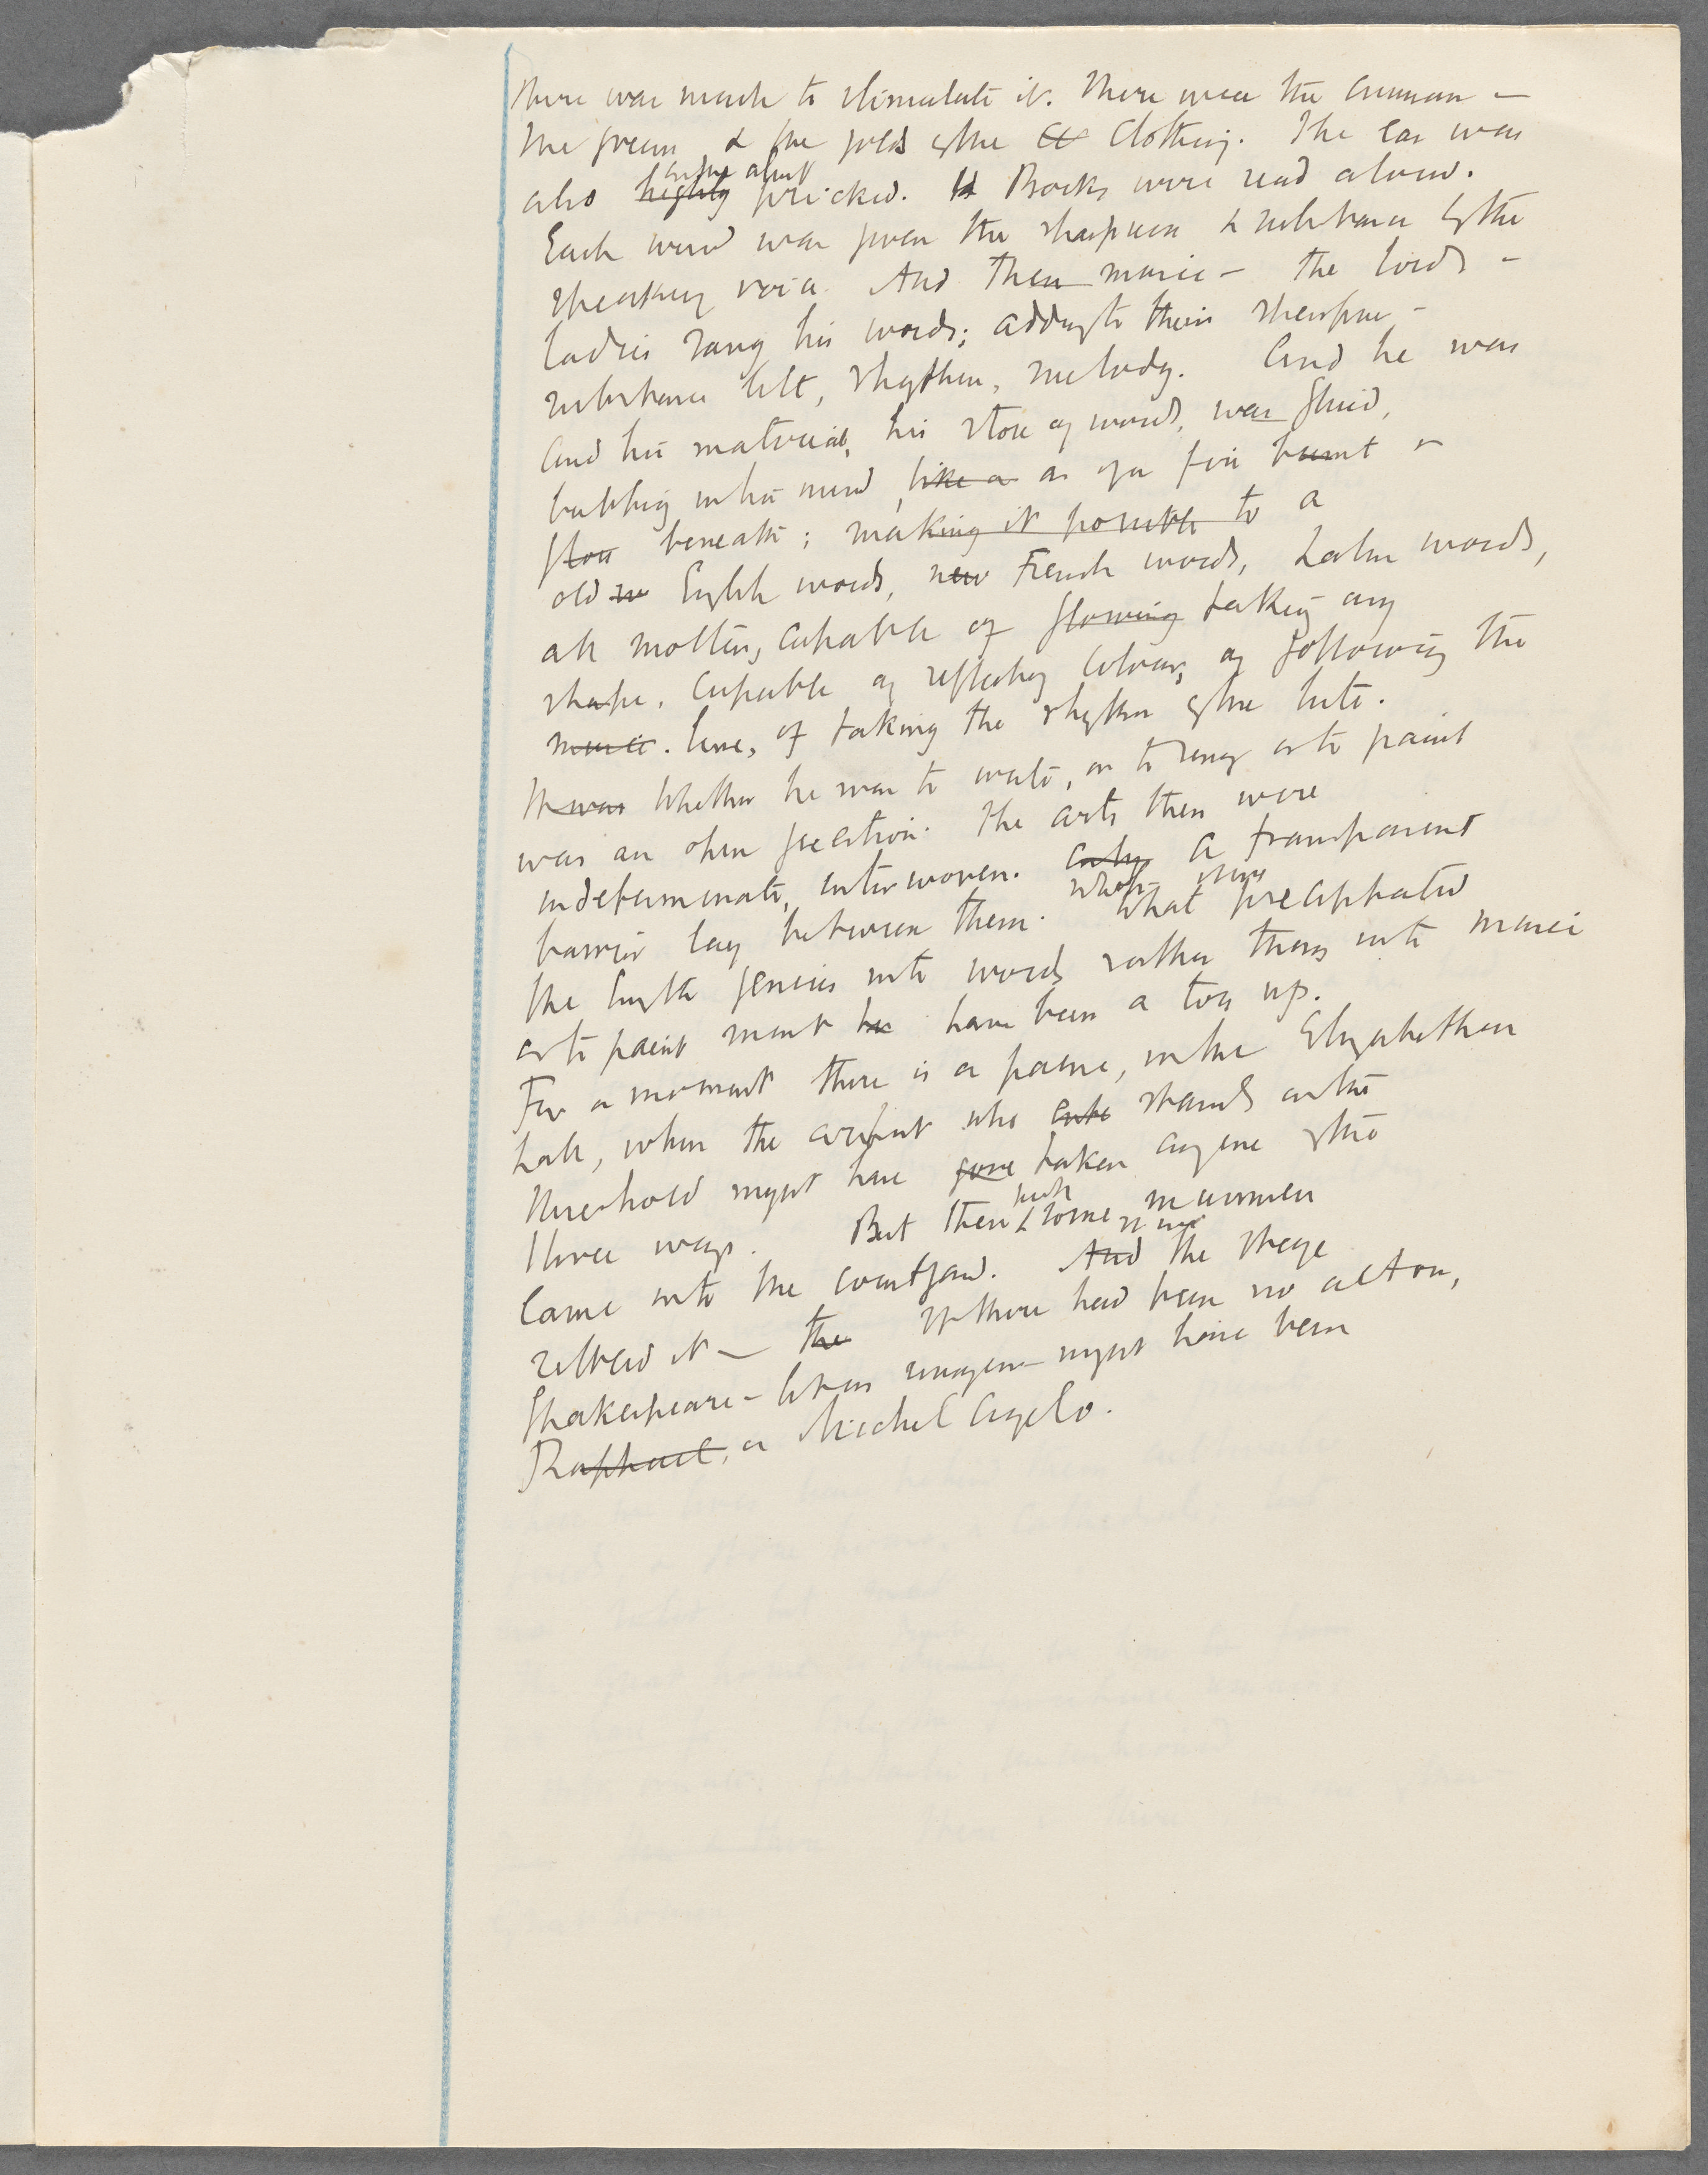 There was much to stimulate it. There was the crimson -
the green & the gold of the Cl Clothing. The ear was
also highly pricked. H Books were read aloud.
on the alert
Each word was given the sharpness & substance of the
speaking voice. And then music - the lords -
ladies sang his words; adding to their sharpness -
substance lilt, rhythm, melody. And he was
And his material, his store of words, was fluid,
bubbling in his mind, like a as if a fire burnt
flow beneath; making it possible to a
old w English words, new French words, Latin words,
all molten, capable of flowing taking any
shape. Capable of reflecting colour, of following the
music. line, of taking the rhythm of the lute.
It was Whether he was to write, or to sing or to paint
was an open question. The arts then were
indeterminate, interwoven. only A transparent
barrier lay between them. What precipitated
the English genius into words rather than into music
or to paint must ha have been a toss up.
For a moment there is a pause, in the Elizabethan
hall, when the artist who ente stands on the
threshold might have gone taken any one of the
three ways. But then some mummers
came into the courtyard. And the stage
settled it - the If there had been no actors,
Shakespeare - let us imagine - might have been
Raphael, or Michel Angelo.